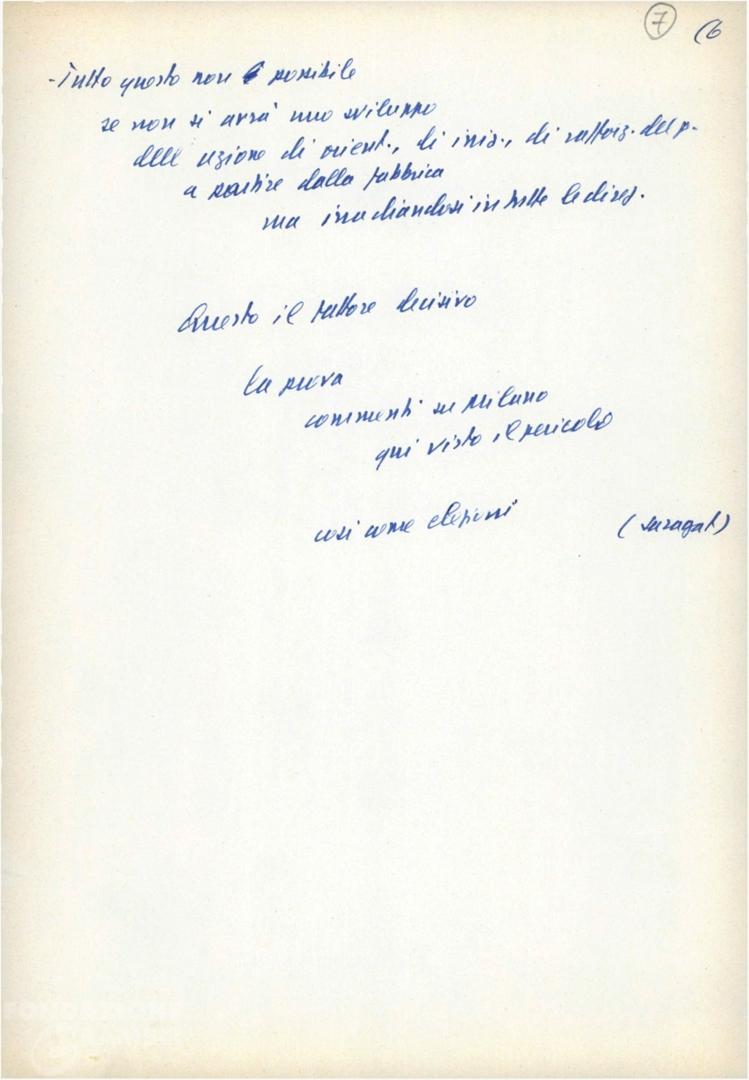 7 (6
- Tutto questo non è possibile
se non si avrà uno sviluppo
dell'azione di orient., di iniz., di rafforz. del p.
a partire dalla fabbrica
ma irradiandosi in tutte le direz.
Questo il fattore decisivo
la prova
commenti su Milano
qui visto il pericolo
così come elezioni (Saragat)
FONDAZIONE